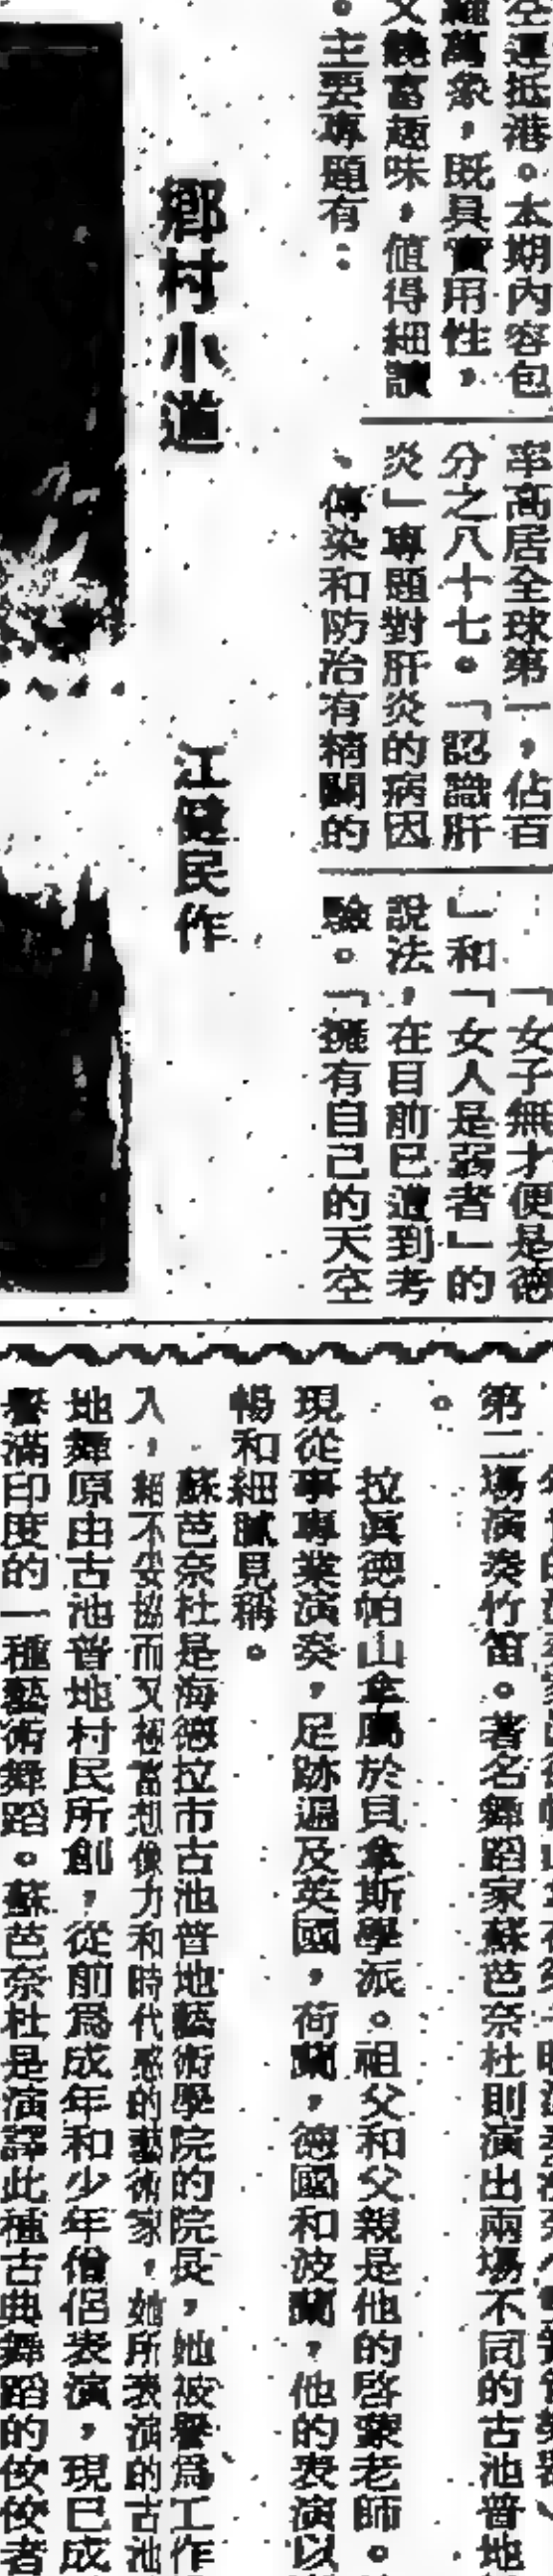 空運抵港。本期內容包
羅萬象，既具實用性，
又饒富趣味，值得細讀
。主要專題有：
率高居全球第一，佔百
分之八十七。「認識肝
炎」專題對肝炎的病因
、傳染和防治有精闢的
「女子無才便是德
」和「女人是弱者」的
說法，在目前已遭到考
驗。「擁有自己的天空
鄉村小道
江健民作
第二場演奏竹笛。著名舞蹈家蘇芭奈杜則演出兩場不同的古池普地
。
拉眞德帕山拿屬於貝拿斯學派。祖父和父親是他的啓蒙老師。
現從事專業演奏，足跡遍及英國，荷蘭，德國和波蘭，他的表演以
暢和細膩見稱。
蘇芭奈杜是海德拉市古池普地藝術學院的院長，她被譽爲工作
入，絕不妥協而又極富想像力和時代感的藝術家，她所表演的古池
地舞原由古池普地村民所創，從前爲成年和少年僧侶表演，現已成
譽滿印度的一種藝術舞蹈。蘇芭奈杜是演譯此種古典舞蹈的佼佼者